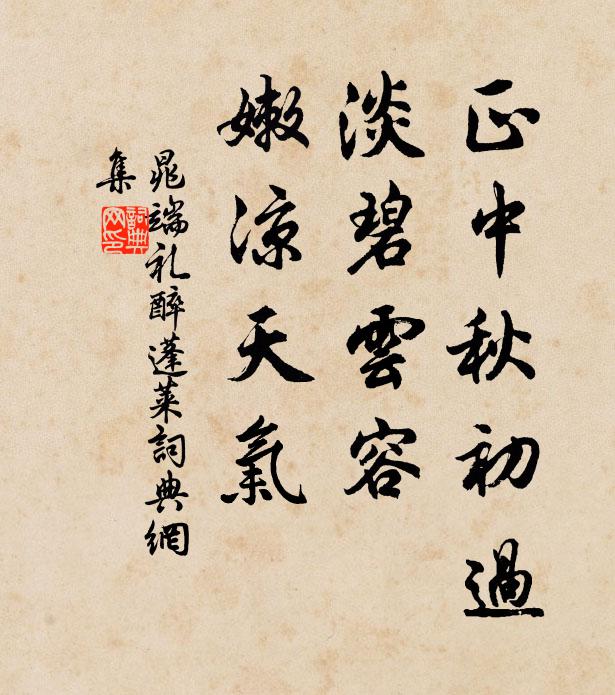 正中秋初過
淡碧雲容
嫩涼天氣
晁端礼醉蓬萊詞典網
集
詞典網印